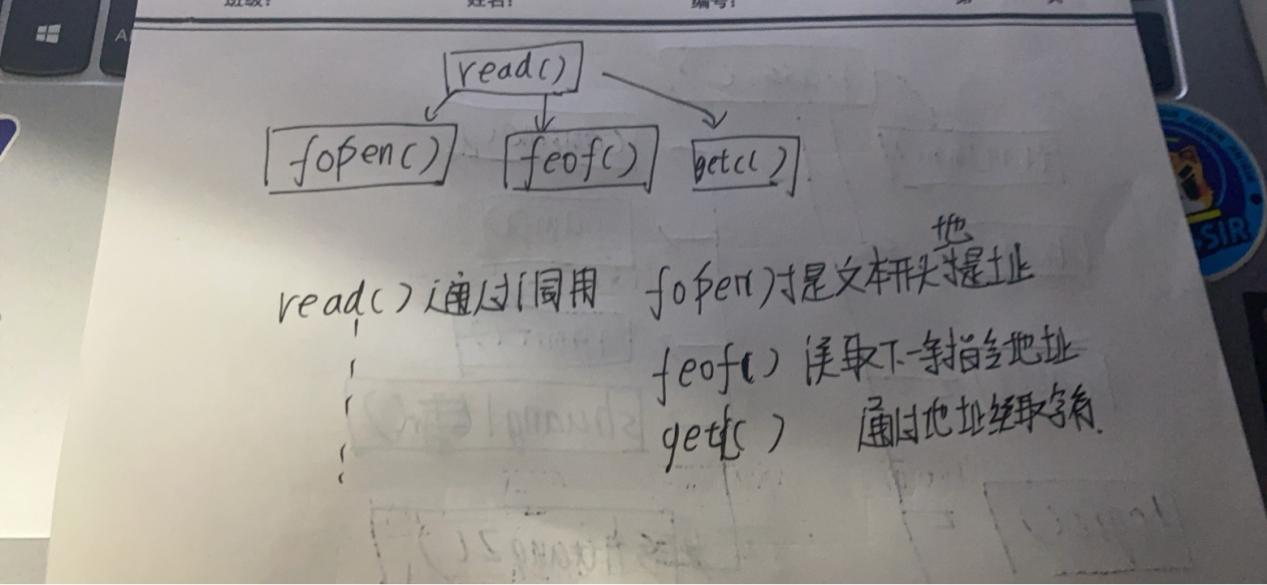 班级:
姓名:
编号:
第
页
read()
fopen()
feof()
getc()
read()通过调用 fopen()找文本开头地址
feof() 读取下一条指令地址
getc() 通过地址读取字符.
SIR